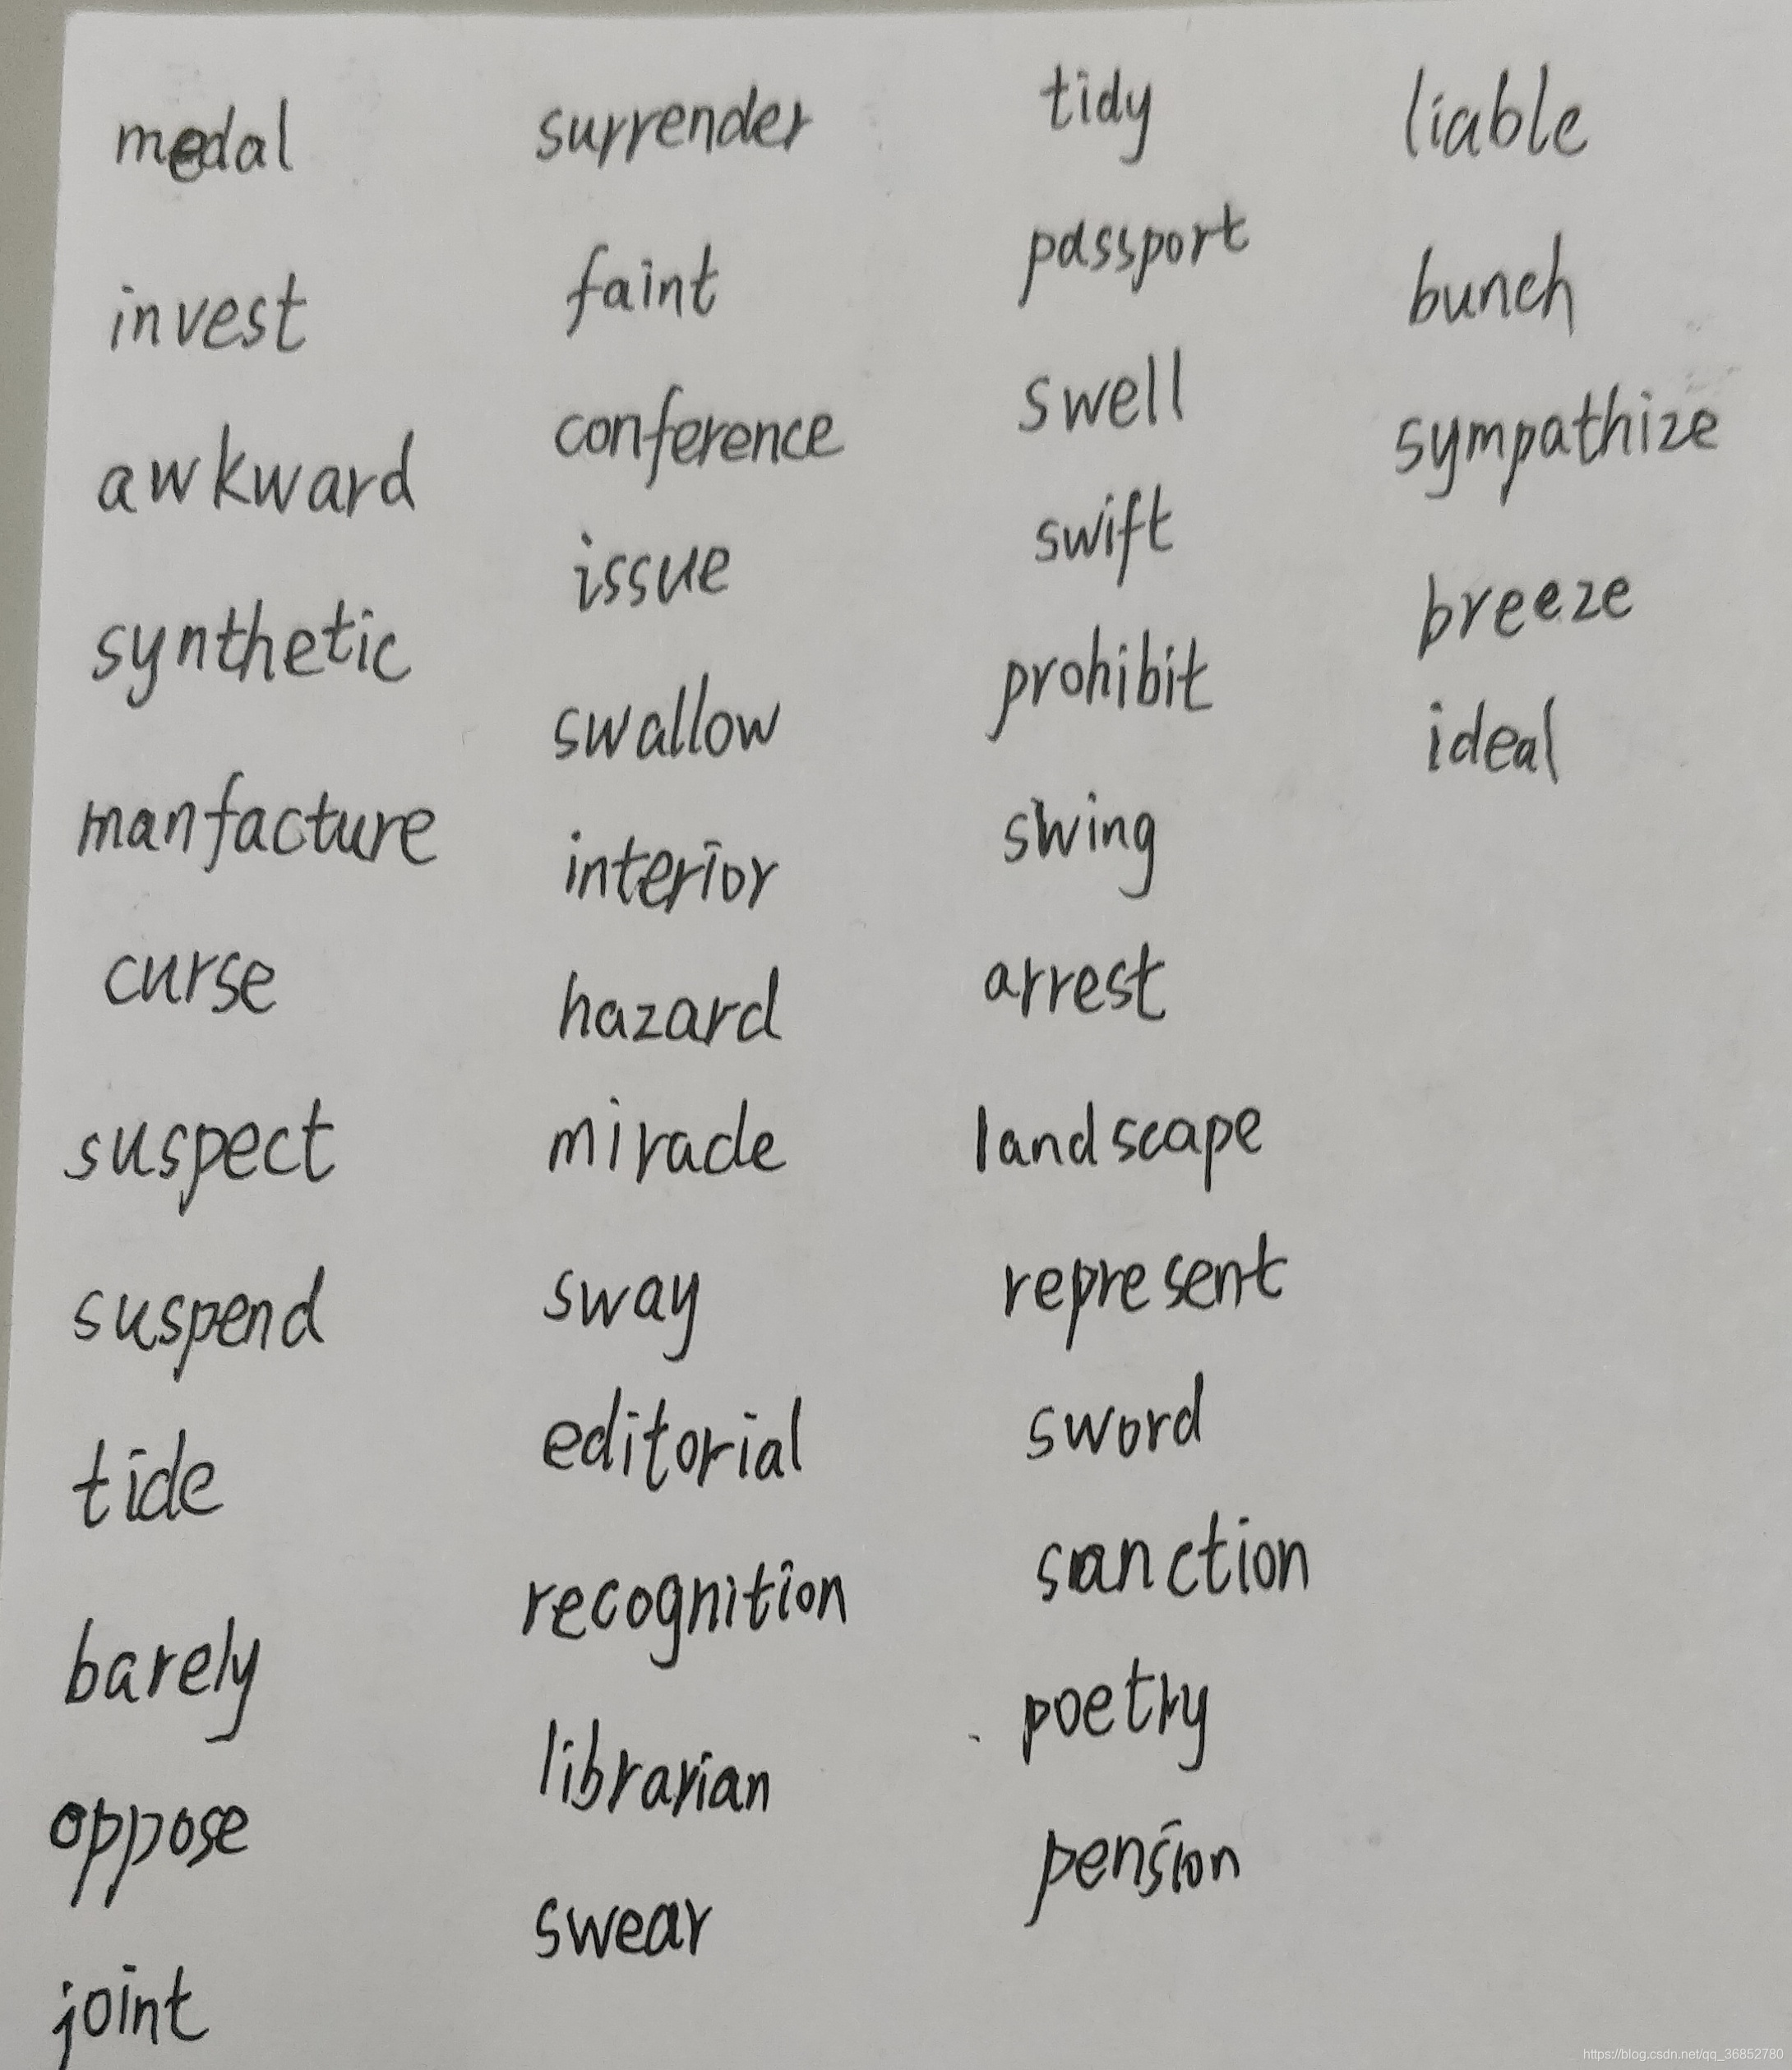 medal
invest
awkward
synthetic
manfacture
curse
suspect
suspend
tide
barely
oppose
joint
surrender
faint
conference
issue
swallow
interior
hazard
miracle
sway
editorial
recognition
librarian
swear
tidy
passport
swell
swift
prohibit
swing
arrest
landscape
represent
sword
sanction
poetry
pension
liable
bunch
sympathize
breeze
ideal
https://blog.csdn.net/qq_36852780